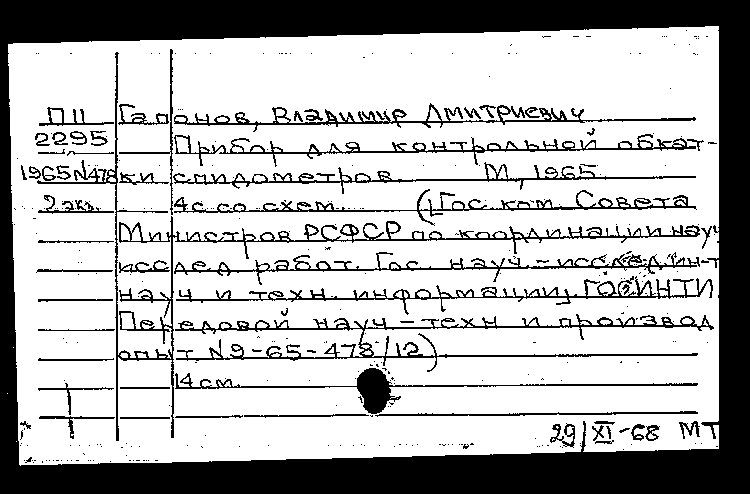 П11 Гапонов, Владимир Дмитриевич
2295 Прибор для контрольной обкат-
1965 N478 ки спидометров. М., 1965.
2 экз. 4с со схем. (Гос. ком. Совета
Министров РСФСР по координации науч
исслед. работ. Гос. науч.-исслед. ин-т
науч. и техн. информации. ГОСИНТИ.
Передовой науч-техн и производ
опыт. N9-65-478/12)
14 см.
29/XI-68 МТ